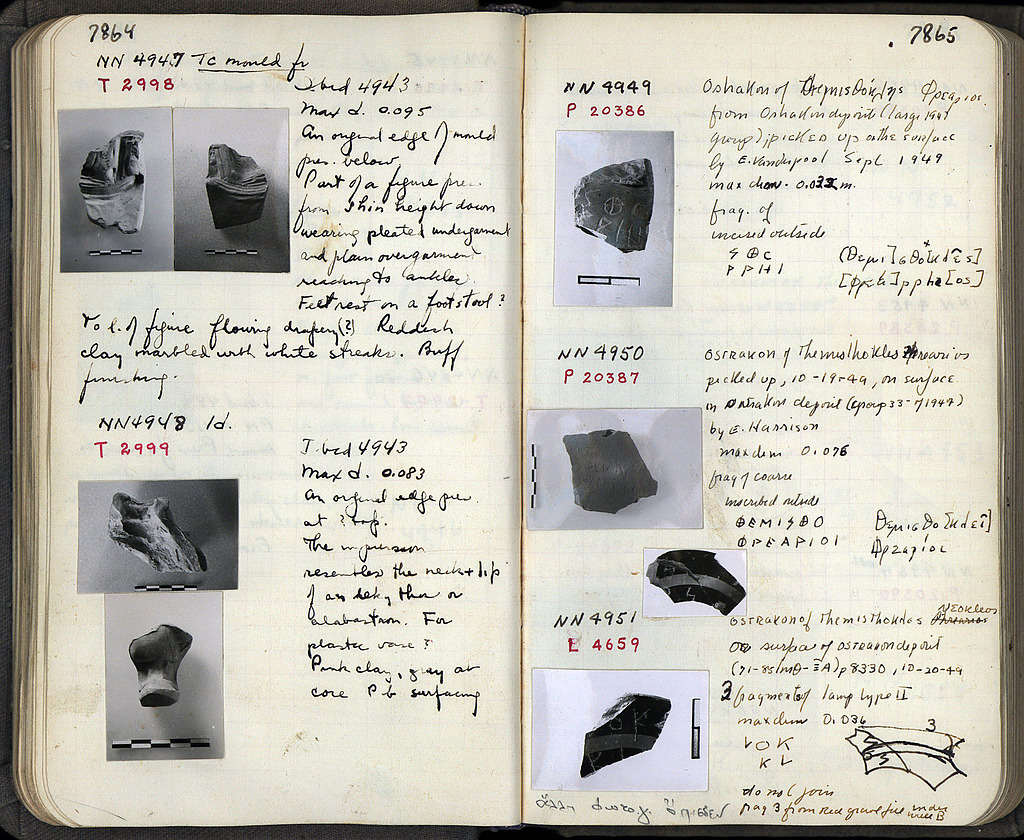 7864
NN 4947 Tc mould fr
T 2998
J. bed 4943
Max d. 0.095
An orginal edge of mould
pres. below
Part of a figure pres.
from shin height down
wearing pleated undergarment
and plain overgarment
reaching to ankles.
Feet rest on a footstool?
To l. of figure flowing drapery(?) Reddish
clay marbled with white streaks. Buff
finishing.
NN4948 Id.
T 2999
J. bed 4943
Max d. 0.083
An orginal edge pres.
at ? top.
The impression
resembles the neck + lip
of an lekythos or
alabastron. For
plastic vase?
Pink clay, gray at
core P b surfacing
7865
NN 4949
P 20386
Ostrakon of Themisthokles
from Ostrakon deposit (large 1947
group); picked up on the surface
by E. Vanderpool Sept 1949
max dim. 0.032 m.
frag. of
incised outside
ϟ Θ C
P P H I
NN 4950
P 20387
Ostrakon of Themisthokles Phrearios
picked up, 10-19-49, on surface
in Ostrakon deposit (group 33-1947)
by E. Harrison
max dim 0.076
frag of coarse
inscribed outside
ΘEMIϟΘO
ΦPEAPIOI
NN 4951
L 4659
OSTRAKON of Themisthokles Neokleos
on surface of ostrakon deposit
p 8330, 10-20-49
3 fragments of lamp type II
max dim 0.036
V O K
K L
3
do not join
frag 3 from